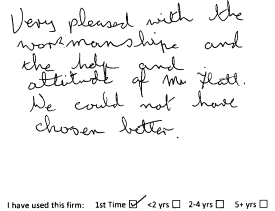 Very pleased with the
workmanship and
the help and
attitude of Mr Flatt.
We could not have
chosen better.
I have used this firm: 1st Time ☑ <2 yrs ☐ 2-4 yrs ☐ 5+ yrs ☐